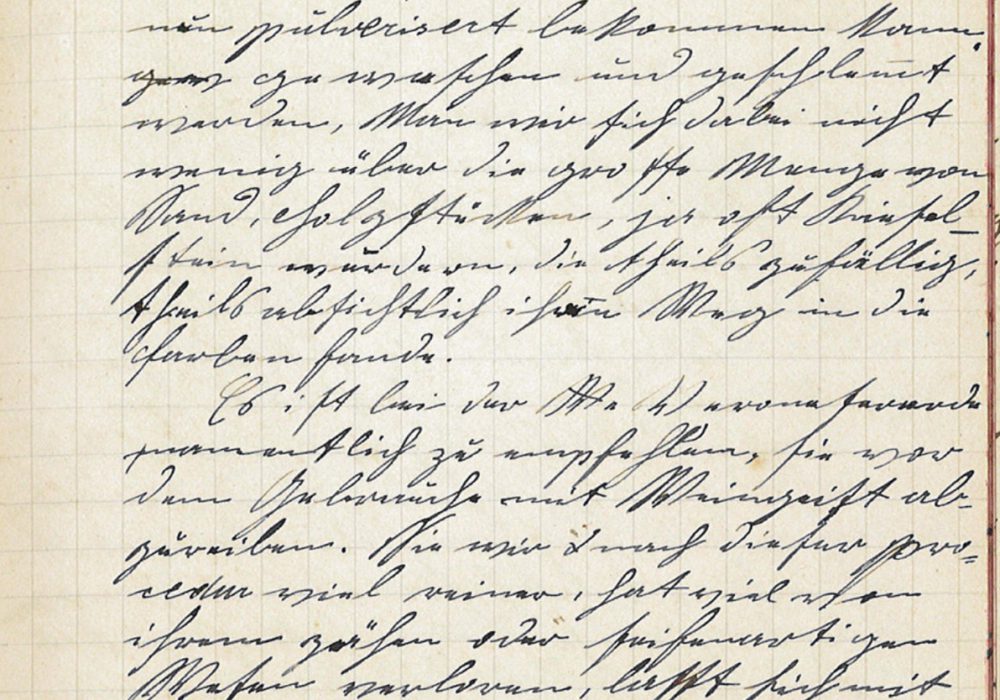 nun pulverisert bekommen kann,
gew gewaschen und geschlemt
werden, Man wir sich dabei nicht
wenig über die grosse Menge von
Sand, Holzstücken, ja oft Kiesel-
stein wundern, die theils zufällig,
theils absichtlich ihren Weg in die
Farben fande.
Es ist bei der Veroneserrerde
namentlich zu empfehlen, sie vor
dem Gebrauche mit Weingeist ab-
zureiben. Sie wird nach dieser Pro-
cedur viel reiner, hat viel von
ihrem zähen oder seifenartigen
Wesen verloren, lasst sich mit